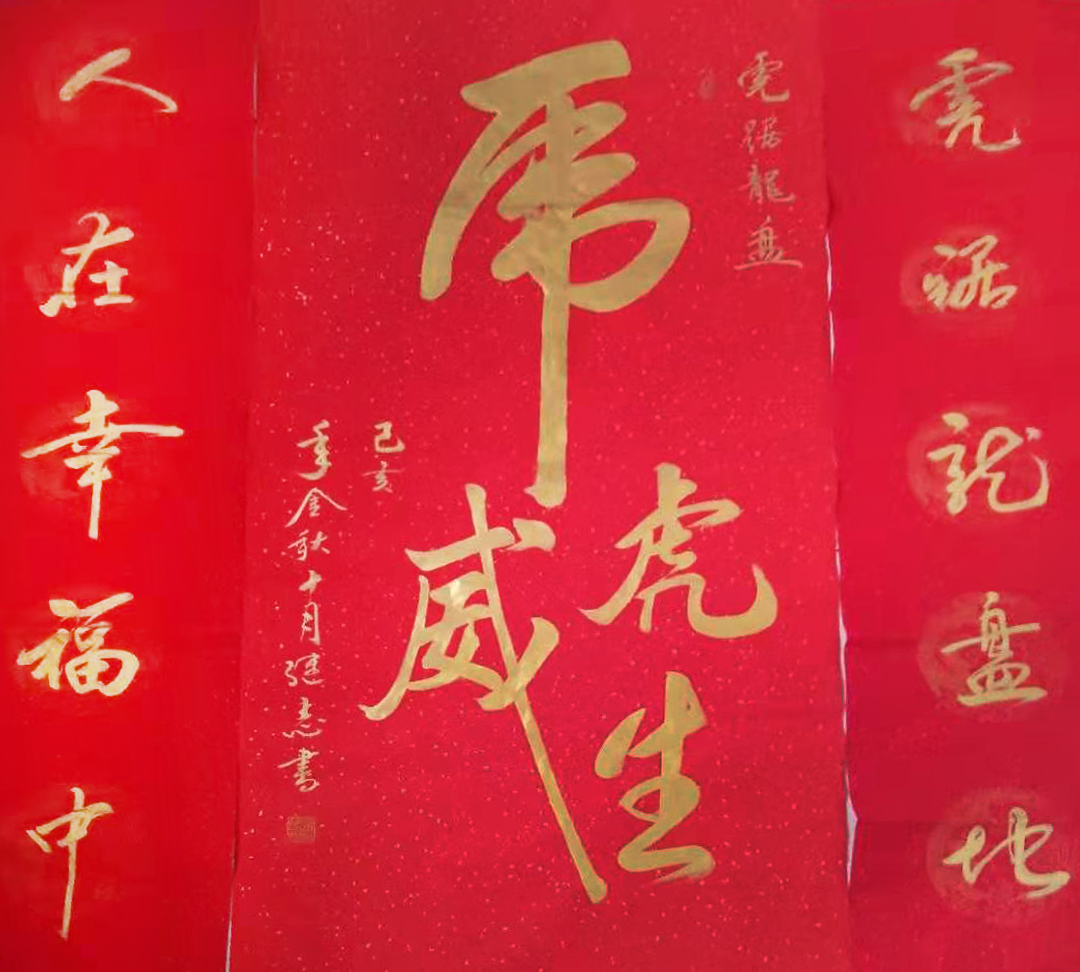 虎踞龙盘地
虎踞龍盤
虎
虎生
威
己亥
年金秋十月继志書
人在幸福中